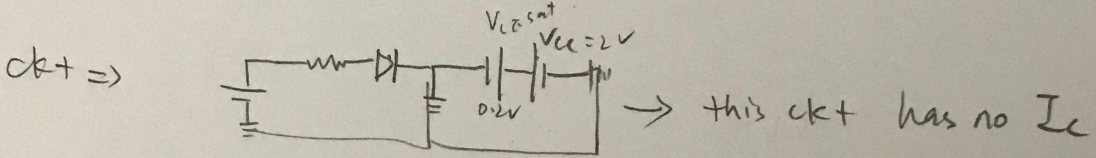 VCE sat
VCC = 2V
ckt ⇒
0.2V
→ this ckt has no Ic